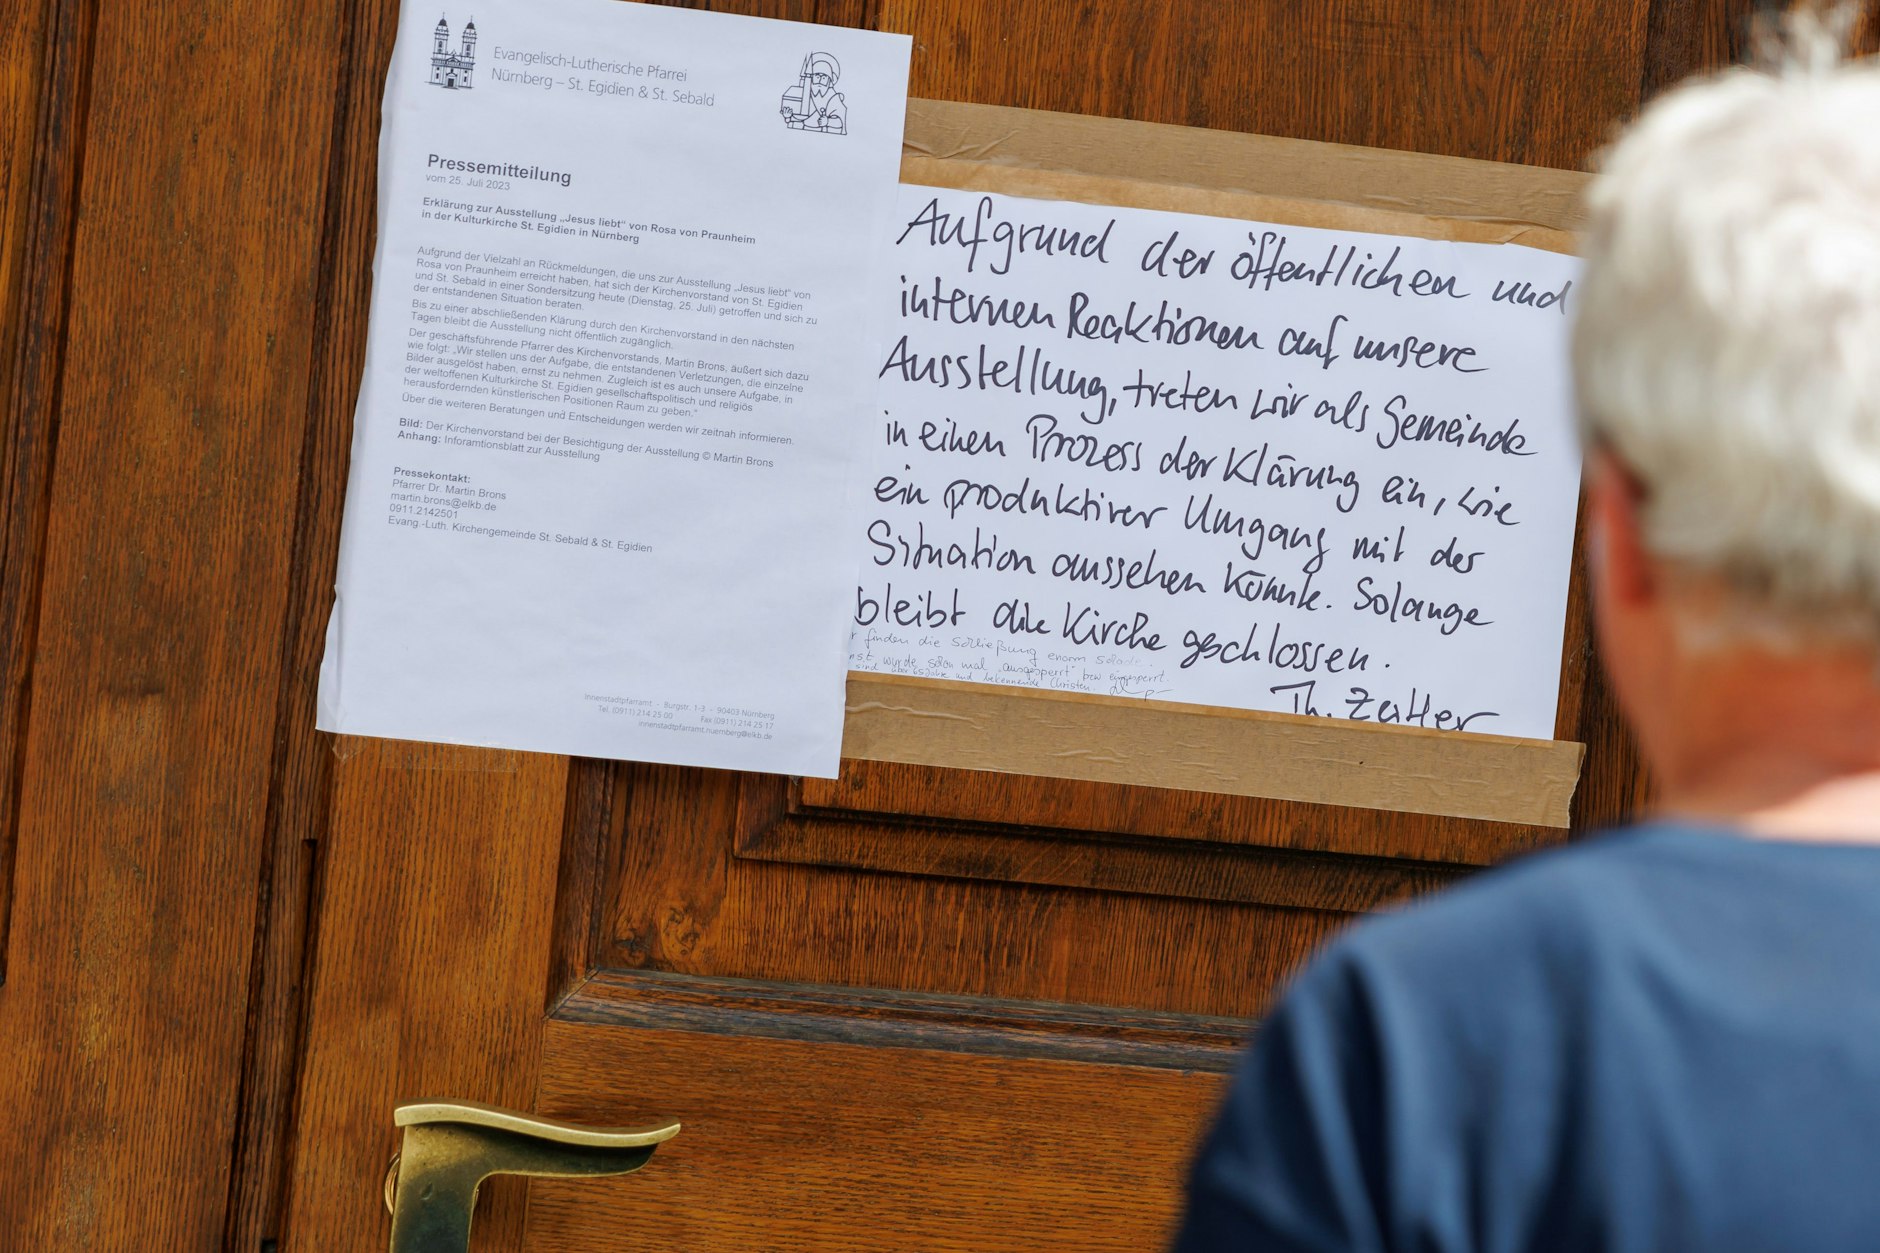 Evangelisch-Lutherische Pfarrei
Nürnberg – St. Egidien & St. Sebald
Pressemitteilung
vom 25. Juli 2023
Erklärung zur Ausstellung „Jesus liebt“ von Rosa von Praunheim
in der Kulturkirche St. Egidien in Nürnberg
Aufgrund der Vielzahl an Rückmeldungen, die uns zur Ausstellung „Jesus liebt“ von
Rosa von Praunheim erreicht haben, hat sich der Kirchenvorstand von St. Egidien
und St. Sebald in einer Sondersitzung heute (Dienstag, 25. Juli) getroffen und sich zu
der entstandenen Situation beraten.
Bis zu einer abschließenden Klärung durch den Kirchenvorstand in den nächsten
Tagen bleibt die Ausstellung nicht öffentlich zugänglich.
Der geschäftsführende Pfarrer des Kirchenvorstands, Martin Brons, äußert sich dazu
wie folgt: „Wir stellen uns der Aufgabe, die entstandenen Verletzungen, die einzelne
Bilder ausgelöst haben, ernst zu nehmen. Zugleich ist es auch unsere Aufgabe, in
der weltoffenen Kulturkirche St. Egidien gesellschaftspolitisch und religiös
herausfordernden künstlerischen Positionen Raum zu geben.“
Über die weiteren Beratungen und Entscheidungen werden wir zeitnah informieren.
Bild: Der Kirchenvorstand bei der Besichtigung der Ausstellung © Martin Brons
Anhang: Inforamtionsblatt zur Ausstellung
Pressekontakt:
Pfarrer Dr. Martin Brons
martin.brons@elkb.de
0911.2142501
Evang.-Luth. Kirchengemeinde St. Sebald & St. Egidien
Innenstadtpfarramt - Burgstr. 1-3 - 90403 Nürnberg
Tel. (0911) 214 25 00 Fax (0911) 214 25 17
innenstadtpfarramt.nuernberg@elkb.de
Aufgrund der öffentlichen und
internen Reaktionen auf unsere
Ausstellung, treten wir als Gemeinde
in einen Prozess der Klärung ein, wie
ein produktiver Umgang mit der
Situation aussehen könnte. Solange
bleibt die Kirche geschlossen.
finden die Schließung enorm
wurde schon mal "ausgesperrt" bzw eingesperrt.
sind über 65 Jahre und bekennende Christen.
Th. Zeitler